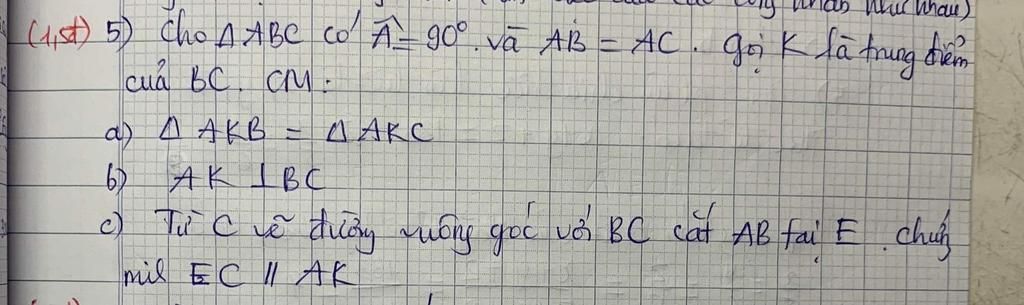 (1,5đ) 5) Cho Δ ABC có Â = 90° và AB = AC. gọi K là trung điểm
của BC. CM:
a) Δ AKB = Δ AKC
b) AK ⊥ BC
c) Từ C vẽ đường vuông góc với BC cắt AB tại E. chứng
minh EC // AK